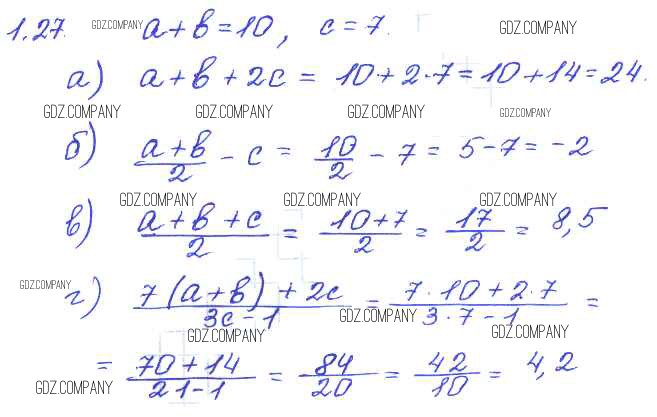 1.27. GDZ.COMPANY a+b=10, c=7. GDZ.COMPANY
а) a+b+2c = 10+2·7=10+14=24.
GDZ.COMPANY GDZ.COMPANY GDZ.COMPANY GDZ.COMPANY
б) (a+b)/2 - c = 10/2 - 7 = 5-7 = -2
GDZ.COMPANY GDZ.COMPANY GDZ.COMPANY
в) (a+b+c)/2 = (10+7)/2 = 17/2 = 8,5
GDZ.COMPANY
г) (7(a+b)+2c)/(3c-1) = (7·10+2·7)/(3·7-1) =
GDZ.COMPANY GDZ.COMPANY GDZ.COMPANY
= (70+14)/(21-1) = 84/20 = 42/10 = 4,2
GDZ.COMPANY GDZ.COMPANY GDZ.COMPANY